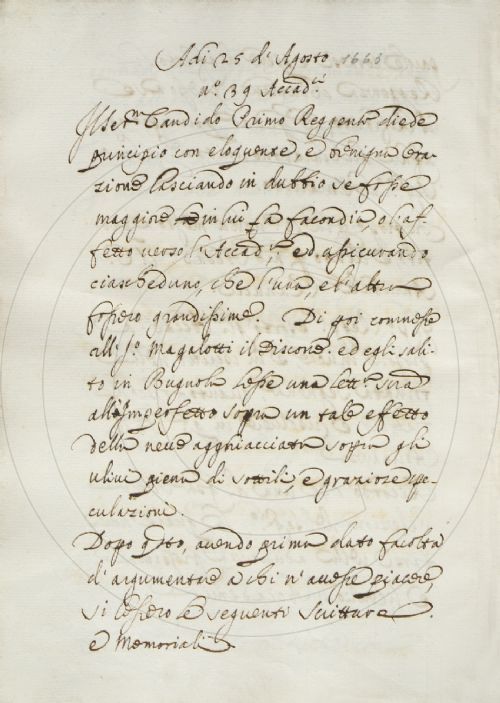 Adi 25 d'Agosto 1660
a.º 39 Accad.ci
Il Ser.mo Candido Primo Reggente diede
principio con eloquente, e benigna Ora-
zione lasciando in dubbio se fosse
maggiore in lui la facondia, o l'af-
fetto verso l'Accad.ci ed assicurando
ciascheduno, che l'una, e l'altro
fossero grandissime. Di poi commesse
all' S.r Magalotti il Discorso. ed egli sali-
to in Bugnola lesse una lett.a
all'Imperfetto sopra un tale effetto
della neve agghiacciata sopra gli
ulivi piena di sottili, e graziose spe-
culazioni.
Dopo q.sto, avendo prima dato facoltà
d'argumentare a chi n'avesse piacere,
si lessero le seguenti Scritture
e Memoriali.